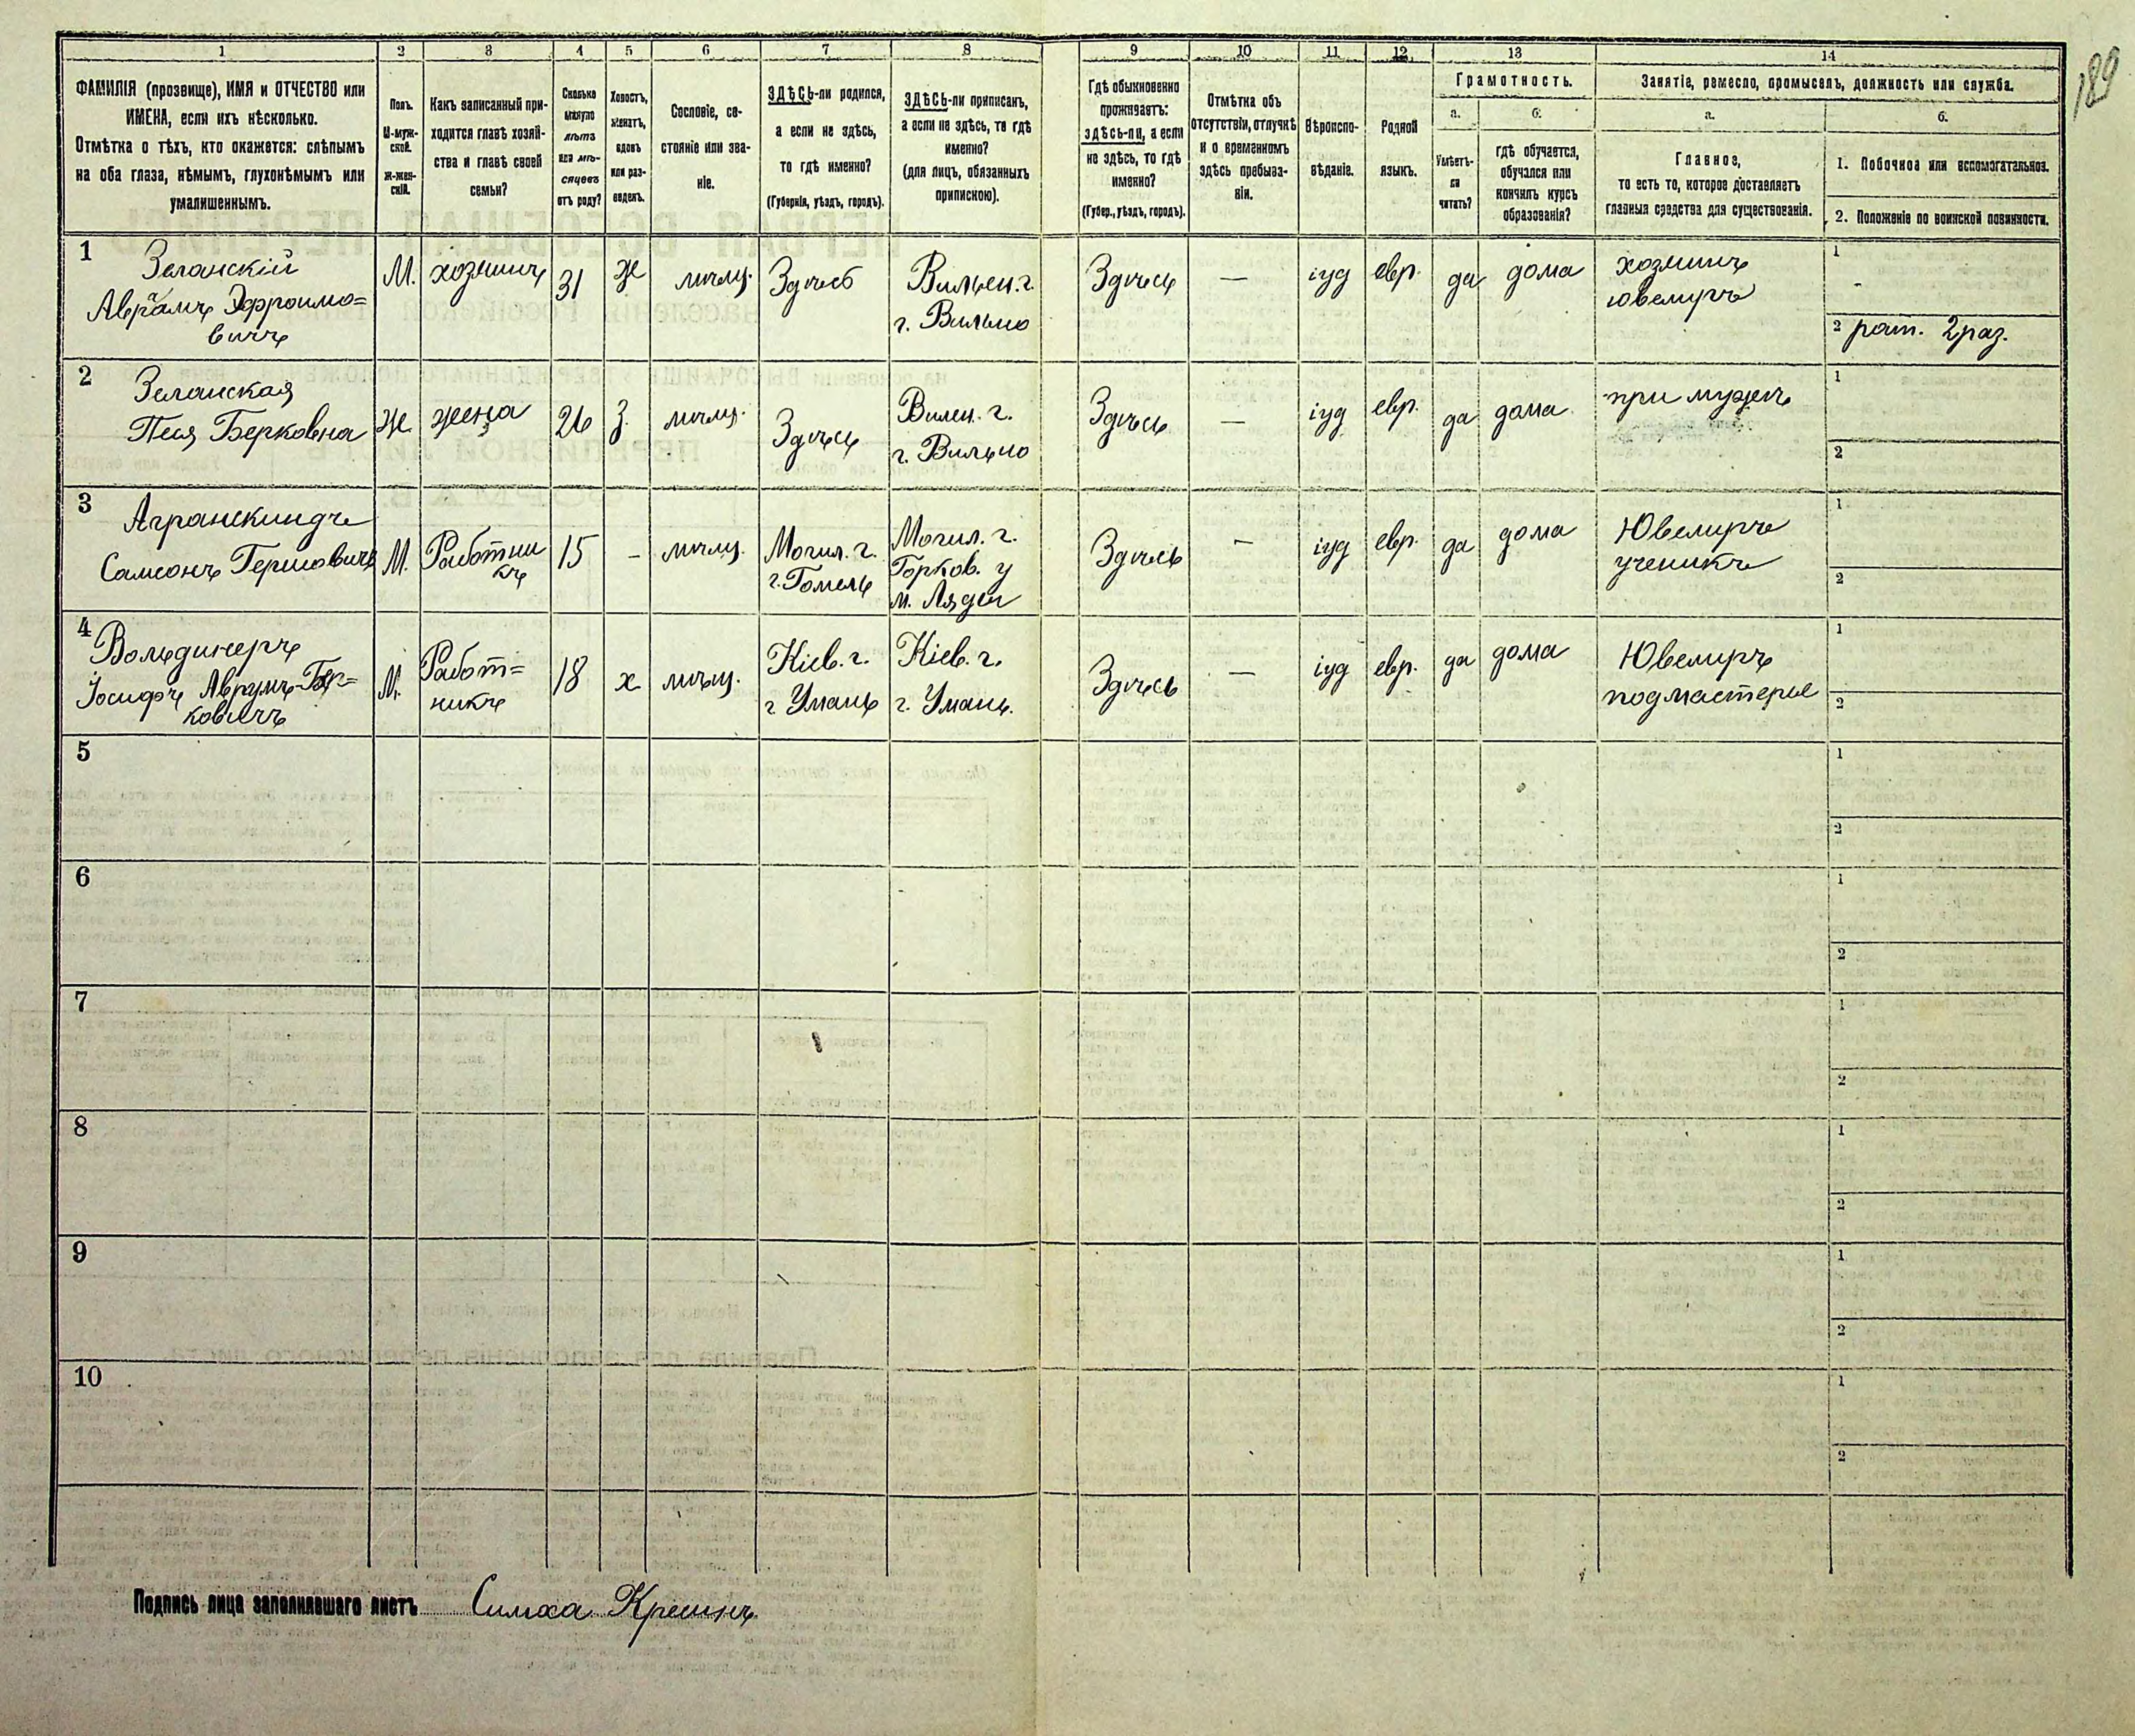 189
1 2 3 4 5 6 7 8 9 10 11 12 13 14
ФАМИЛІЯ (прозвище), ИМЯ и ОТЧЕСТВО или
ИМЕНА, если ихъ нѣсколько.
Отмѣтка о тѣхъ, кто окажется: слѣпымъ
на оба глаза, нѣмымъ, глухонѣмымъ или
умалишеннымъ.
Полъ.
М-муж-
ской.
Ж-жен-
скій.
Какъ записанный при-
ходится главѣ хозяй-
ства и главѣ своей
семьи?
Сколько
минуло
лѣтъ
или мѣ-
сяцевъ
отъ роду?
Холостъ,
женатъ,
вдовъ
или раз-
веденъ.
Сословіе, со-
стояніе или зва-
ніе.
ЗДѢСЬ-ли родился,
а если не здѣсь,
то гдѣ именно?
(Губернія, уѣздъ, городъ).
ЗДѢСЬ-ли приписанъ,
а если не здѣсь, то гдѣ
именно?
(для лицъ, обязанныхъ
припискою).
Гдѣ обыкновенно
проживаетъ:
ЗДѢСЬ-ли, а если
не здѣсь, то гдѣ
именно?
(Губер., уѣздъ, городъ).
Отмѣтка объ
отсутствіи, отлучкѣ
и о временномъ
здѣсь пребыва-
ніи.
Вѣроиспо-
вѣданіе.
Родной
языкъ.
Грамотность.
а.
Умѣетъ-
ли
читать?
б.
гдѣ обучается,
обучался или
кончилъ курсъ
образованія?
Занятіе, ремесло, промыселъ, должность или служба.
а.
Главное,
то есть то, которое доставляетъ
главныя средства для существованія.
б.
1. Побочное или вспомогательное.
2. Положеніе по воинской повинности.
1
Зеланскій
Аврамъ Эфроимо=
вичъ
М.
хозяинъ
31
ж
мѣщ.
Здѣсь
Вилен. г.
г. Вильно
Здѣсь
—
іуд
евр.
да
дома
хозяинъ
ювелиръ
1
2 рат. 2 раз.
2
Зеланская
Песя Берковна
Ж
жена
26
З.
мѣщ.
Здѣсь
Вилен. г.
г. Вильно
Здѣсь
—
іуд
евр.
да
дома
при мужѣ
1
2
3
Агранскиндъ
Самсонъ Гершовичъ
М.
Работни
къ
15
-
мѣщ.
Могил. г.
г. Гомель
Могил. г.
Горков. у
м. Ляды
Здѣсь
—
іуд
евр.
да
дома
Ювелиръ
ученикъ
1
2
4
Вольдинеръ
Іосифъ Аврумъ-Бер=
ковичъ
М.
Работ=
никъ
18
х
мѣщ.
Кіев. г.
г Умань
Кіев. г.
г. Умань.
Здѣсь
—
іуд
евр.
да
дома
Ювелиръ
подмастерье
1
2
5
1
2
6
1
2
7
1
2
8
1
2
9
1
2
10
1
2
Подпись лица заполнявшаго листъ Симха Кресинъ